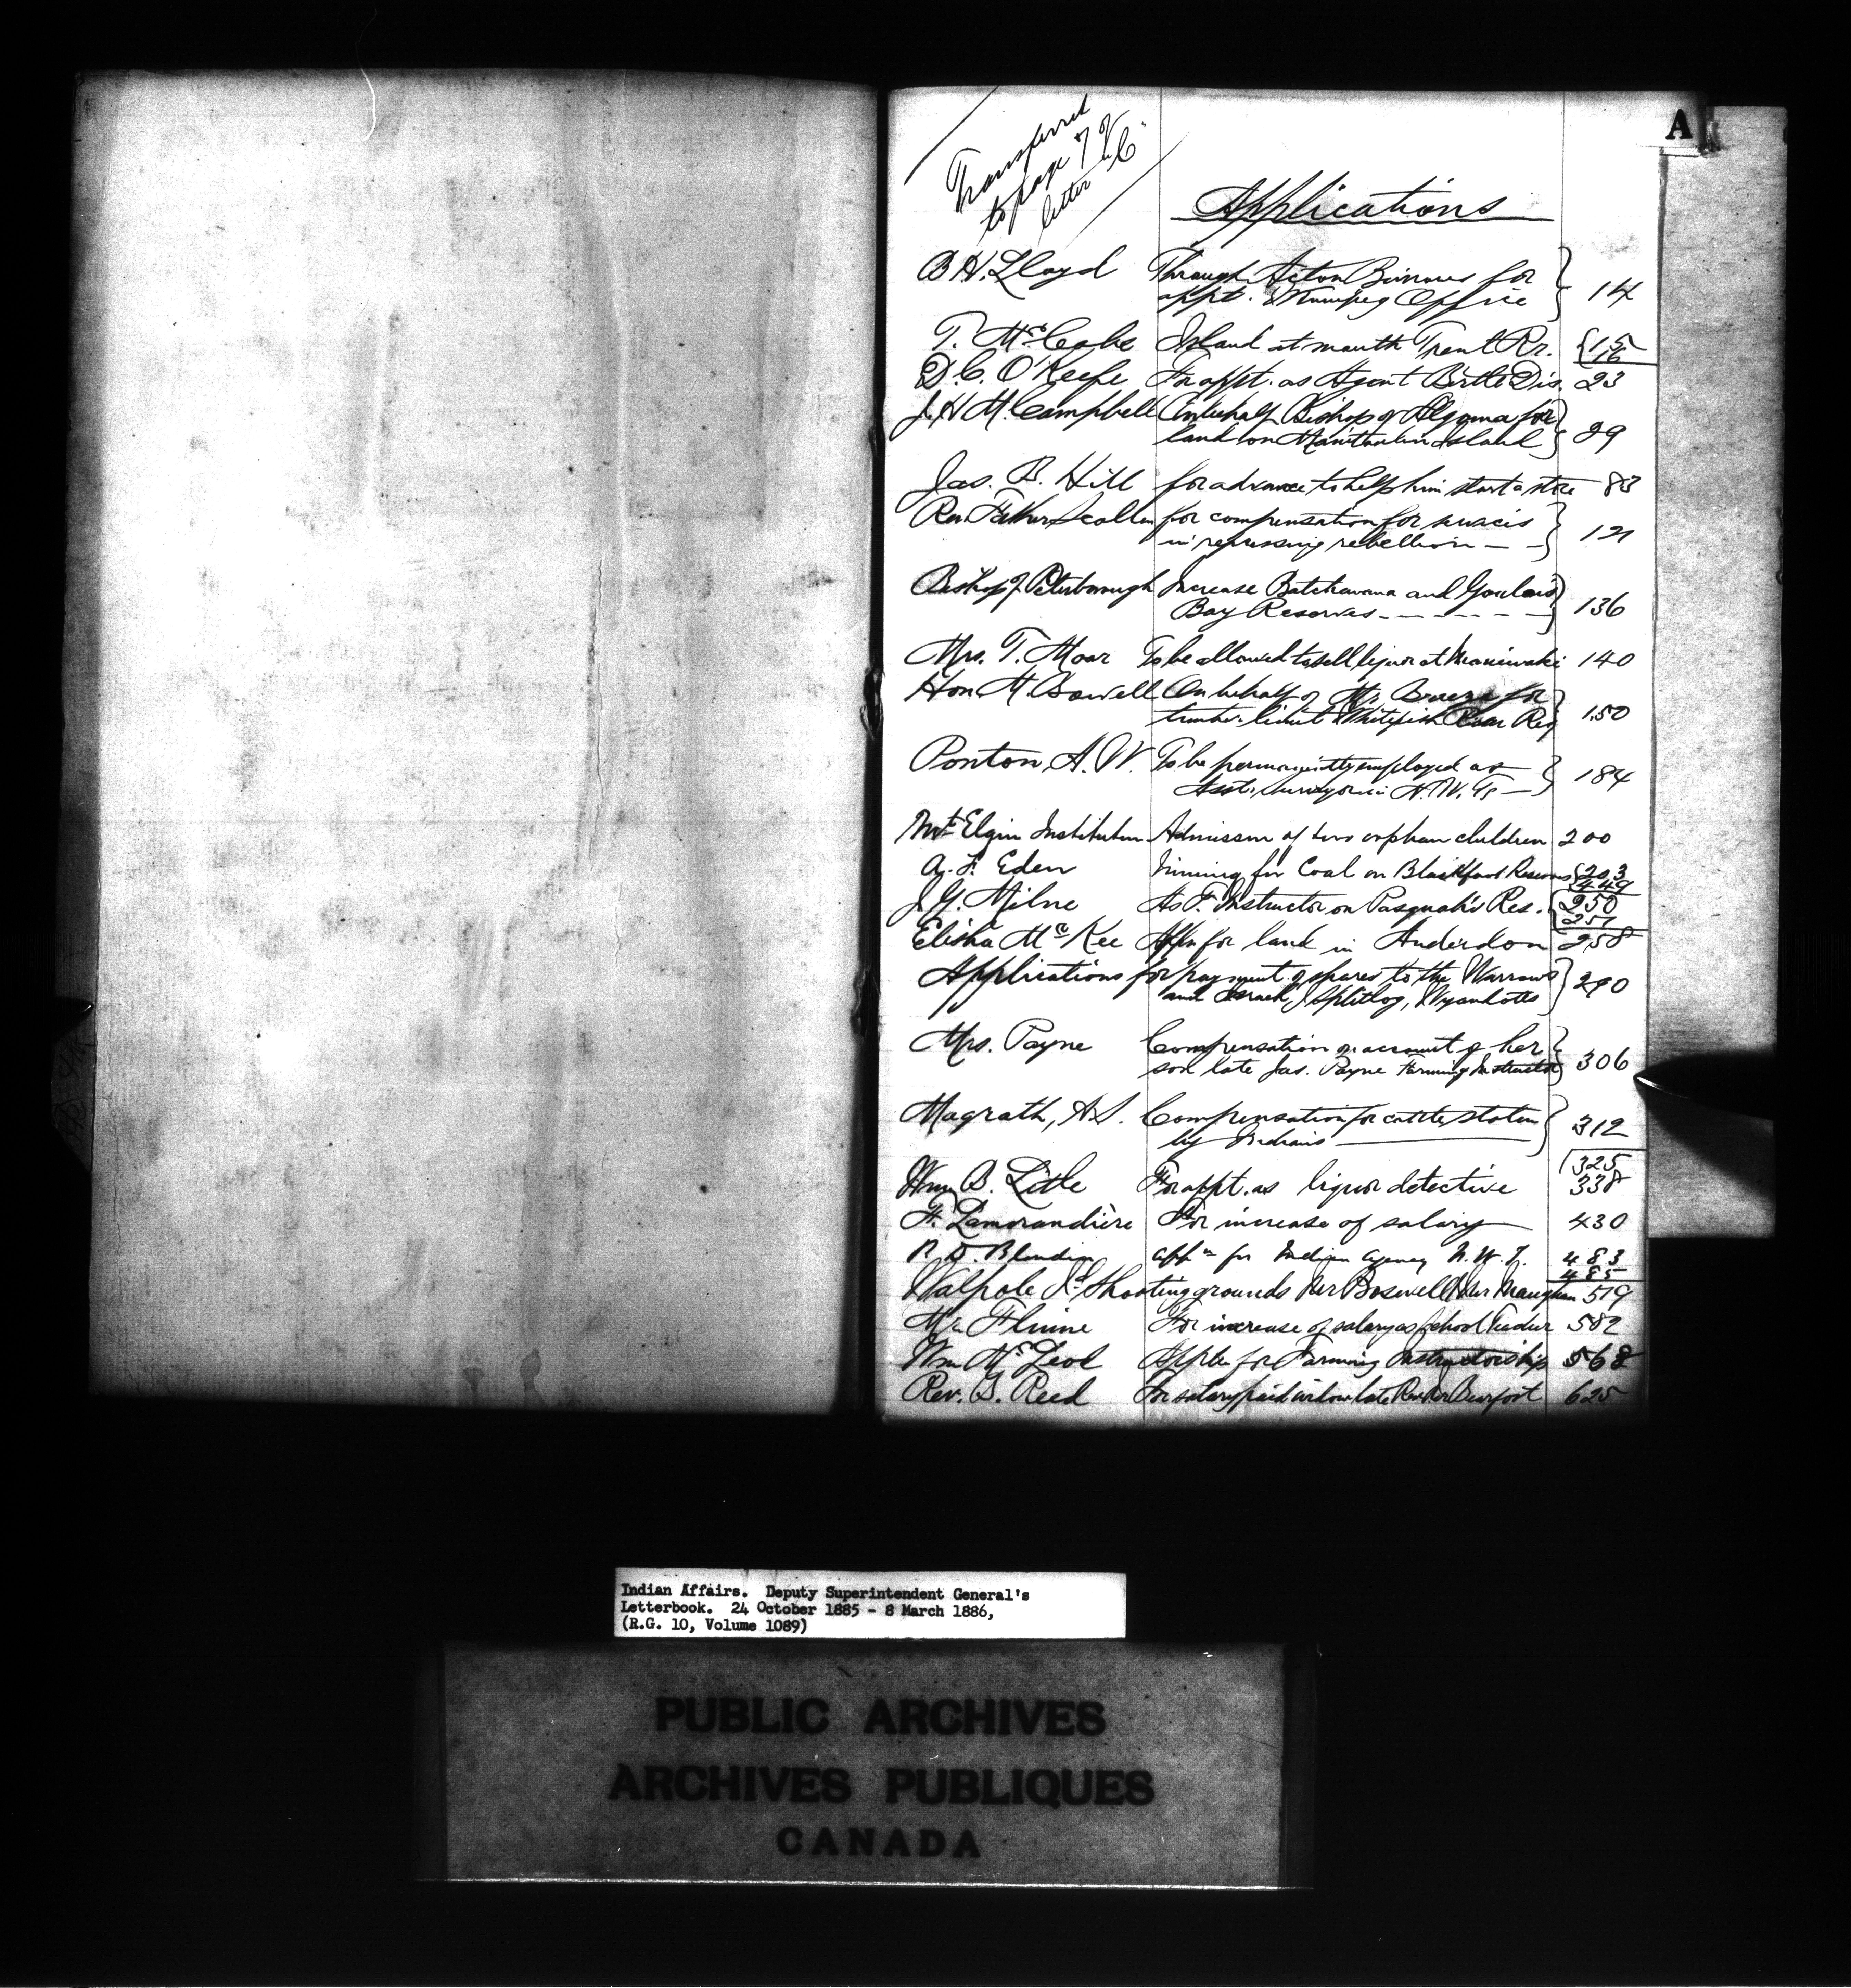 A
Transferred
to page 7 of
letter "C"
Applications
B. H. Lloyd Through Acton Burrows for
appt. Winnipeg Office 14
T. McCabe Island at mouth Trent Rr. 15
16
D. C. O'Keefe For appt. as Agent Birtle Dis. 23
J. H. M. Campbell On behalf Bishop of Algoma for
land on Manitoulin Island 29
Jas. B. Hill for advance to help him start a store 83
Rev. Father Scollen for compensation for services
in repressing rebellion — — 121
Bishop of Peterborough Increase Batchewana and Goulais
Bay Reserves - - - - - 136
Mrs. T. Moar To be allowed to sell liquor at Maniwaki 140
Hon M. Bowell On behalf of Mr. for
timber limit Whitefish River Res 150
Ponton, A. W. To be permanently employed as
Asst. Surveyor in N. W. Ts — 184
Mt. Elgin Institution Admission of two orphan children 200
A. F. Eden Mining for Coal on Blackfoot Reserves 203
449
J. G. Milne As F. Instructor on Pasquah's Res. 250
251
Elisha McKee Appn for land in Anderdon 258
Applications for payment of shares to the Warrows
and Israel, Splitlog, Wyandotts 290
Mrs. Payne Compensation on account of her
son late Jas. Payne Farming Instructor 306
Magrath, A. S. Compensation for cattle stolen
by Indians 312
325
Wm. B. Litle For appt. as liquor detective 338
F. Lamorandière For increase of salary 430
appn for Indian Agency N. W. T. 483
485
Walpole Id Shooting grounds Mr Boswell & Mr Maughan 519
Mr. Flinne For increase of salary as School Teacher 582
Wm McLeod Appln for Farming Instructorship 568
Rev. G. Reed For salary paid widow late Rev. Mr Bearfoot 625
Indian Affairs. Deputy Superintendent General's
Letterbook. 24 October 1885 - 8 March 1886,
(R.G. 10, Volume 1089)
PUBLIC ARCHIVES
ARCHIVES PUBLIQUES
CANADA